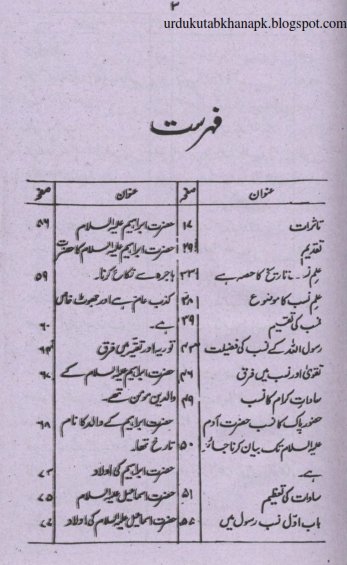 ۲
urdukutabkhanapk.blogspot.com
فہرست
عنوان صفحہ
تاثرات ۱۷
تقدیم ۲۹
علم نسب تاریخ کا حصہ ہے ۳۳
علم نسب کا موضوع ۳۸
نسب کی تقسیم ۳۹
رسول اللہ کے نسب کی فضیلت ۴۳
تقویٰ اور نسب میں فرق ۴۶
سادات کرام کا نسب ۴۹
حضور پاک کا نسب حضرت آدم
علیہ السلام تک بیان کرنا جائز ۵۰
ہے۔
سادات کی تعظیم ۵۱
باب اوّل نسب رسول میں
عنوان صفحہ
حضرت ابراہیم علیہ السلام ۵۶
حضرت ابراہیم علیہ السلام کا حضرت
ہاجرہ سے نکاح کرنا۔ ۵۹
کذب عام ہے اور جھوٹ خاص
ہے۔ ۶۰
توریہ اور تقیہ میں فرق
حضرت ابراہیم علیہ السلام کے
والدین مومن تھے۔
حضرت ابراہیم کے والد کا نام ۶۸
تارخ تھا۔
حضرت ابراہیم کی اولاد ۷۳
حضرت اسماعیل علیہ السلام ۷۵
حضرت اسماعیل علیہ السلام کی اولاد